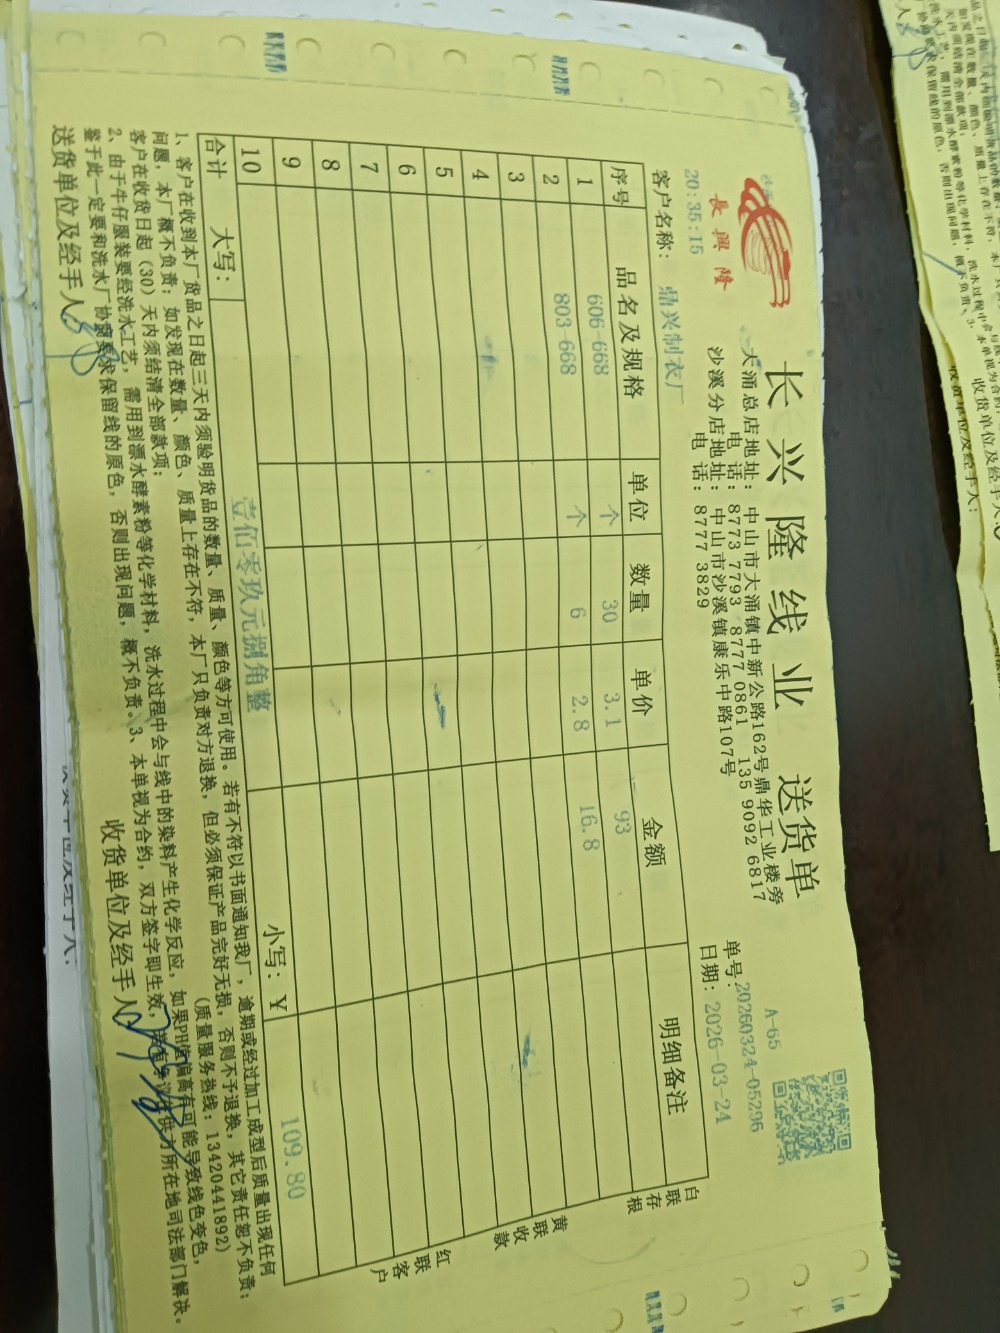 長興隆
长兴隆线业 送货单
A-65
大涌总店地址: 中山市大涌镇中新公路162号鼎华工业楼旁
电 话: 8773 7793 8777 0861 135 9092 6817
沙溪分店地址: 中山市沙溪镇康乐中路107号
电 话: 8777 3829
单号: 20260324-05296
日期: 2026-03-24
20:35:15
客户名称: 鼎兴制衣厂
序号 品名及规格 单位 数量 单价 金额 明细备注
1 606-668 个 30 3.1 93
2 803-668 个 6 2.8 16.8
3
4
5
6
7
8
9
10
合计 大写: 壹佰零玖元捌角整 小写: ¥ 109.80
白联存根
黄联收款
红联客户
1、客户在收到本厂货品之日起三天内须验明货品的数量、质量、颜色等方可使用。若有不符以书面通知我厂,逾期或经过加工成型后质量出现任何
问题,本厂概不负责;如发现在数量、颜色、质量上存在不符,本厂只负责对方退换,但必须保证产品完好无损,否则不予退换,其它责任恕不负责;
客户在收货日起(30)天内须结清全部款项; (质量服务热线: 13420441892)
2、由于牛仔服装要经洗水工艺,需用到漂水酵素粉等化学材料,洗水过程中会与线中的染料产生化学反应,如果PH值偏高有可能导致线色变色,
鉴于此一定要和洗水厂协商要求保留线的原色,否则出现问题,概不负责。3、本单视为合约,双方签字即生效,供方所在地司法部门解决。
送货单位及经手人: 收货单位及经手人: